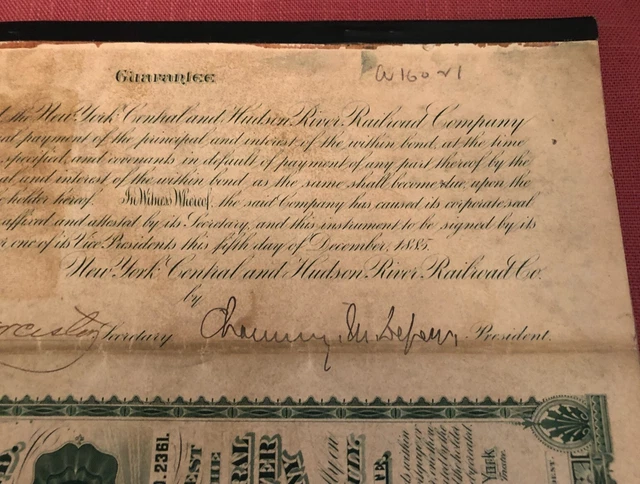 Guarantee
the New York Central and Hudson River Railroad Company
payment of the principal and interest of the within bond, at the time
specified, and covenants in default of payment of any part thereof by the
and interest of the within bond as the same shall become due, upon the
holder hereof. In Witness Whereof, the said Company has caused its corporate seal
affixed and attested by its Secretary, and this instrument to be signed by its
or one of its Vice Presidents this fifth day of December, 1885.
New York Central and Hudson River Railroad Co.
by
Secretary Chauncey M Depew President.
2361.
EST
THE
RAL
VER
NY
ULY.
York